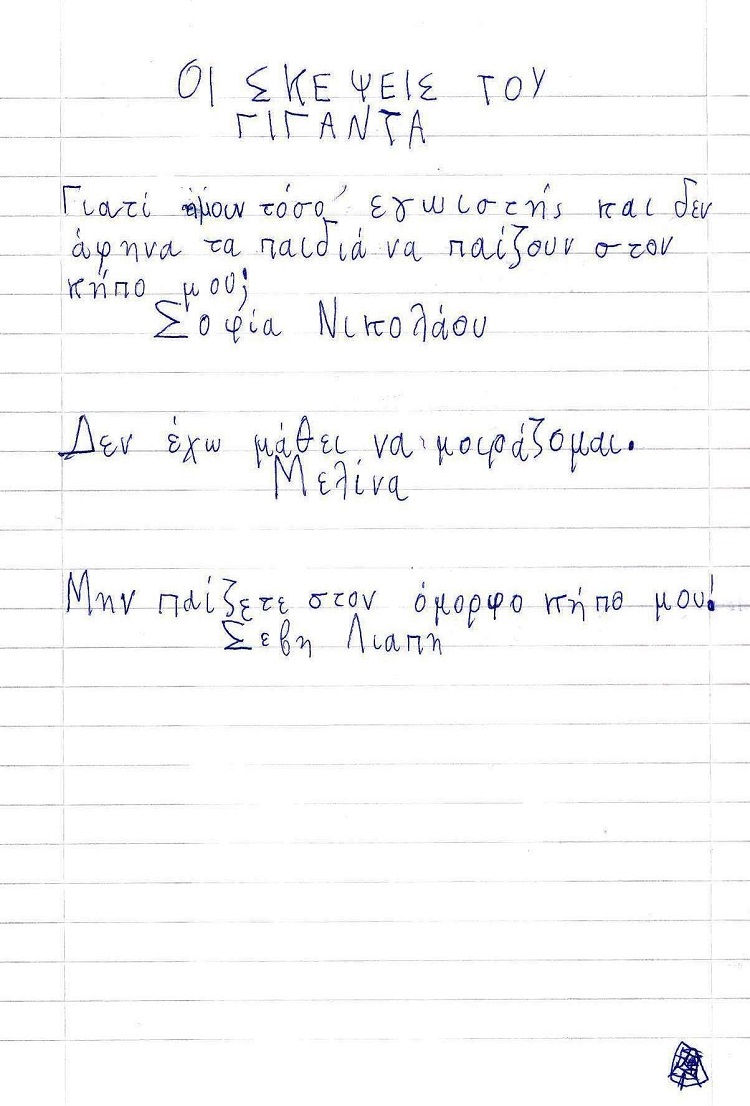 ΟΙ ΣΚΕΨΕΙΣ ΤΟΥ
ΓΙΓΑΝΤΑ
Γιατί ήμουν τόσο εγωιστής και δεν
άφηνα τα παιδιά να παίζουν στον
κήπο μου;
Σοφία Νικολάου
Δεν έχω μάθει να μοιράζομαι.
Μελίνα
Μην παίζετε στον όμορφο κήπο μου!
Σεβη Λιαπη